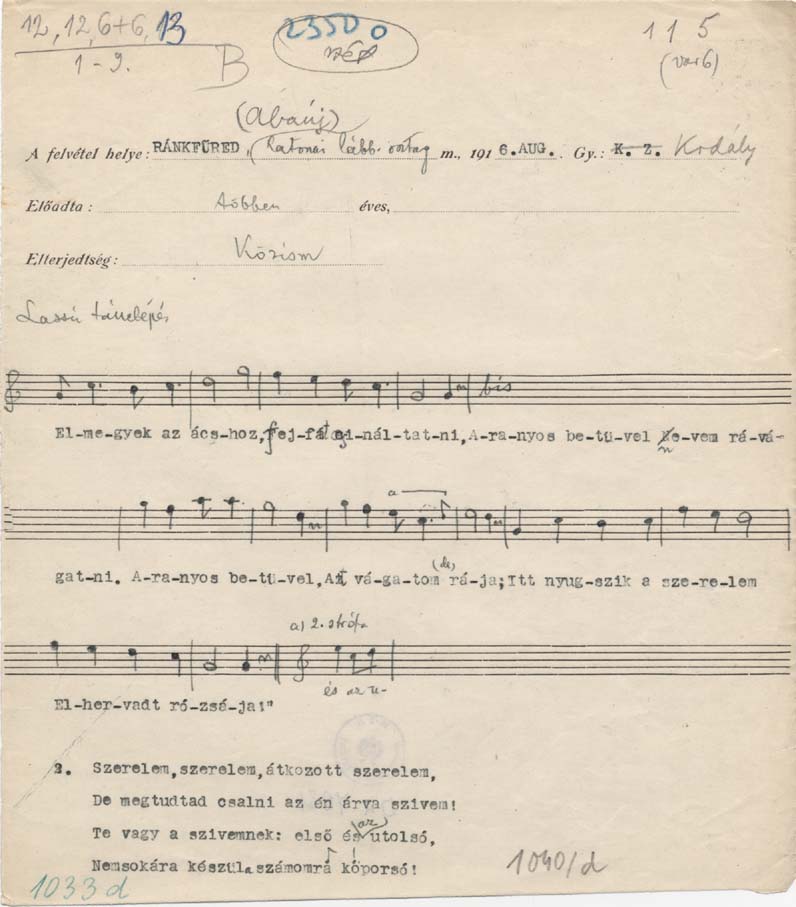 12, 12, 6+6, 13
1-9.
B
23500
115
(var6)
(Abaúj)
A felvétel helye: RÁNKFÜRED, (Katonai lább. osztag m., 1916.AUG. Gy.: K. Z. Kodály
Előadta: többen éves,
Elterjedtség: Közism
Lassú tánclépés
bis
El-me-gyek az ács-hoz, fej-fát csi-nál-tat-ni, A-ra-nyos be-tü-vel ne-vem rá-vá-
a
gat-ni. A-ra-nyos be-tü-vel, Azt vá-ga-tom (de) rá-ja; Itt nyug-szik a sze-re-lem
a) 2. strófa
és az u-
El-her-vadt ró-zsá-ja!"
2. Szerelem, szerelem, átkozott szerelem,
De megtudtad csalni az én árva szivem!
Te vagy a szivemnek: első és az utolsó,
Nemsokára készül a számomra koporsó!
1033 d
1040/d